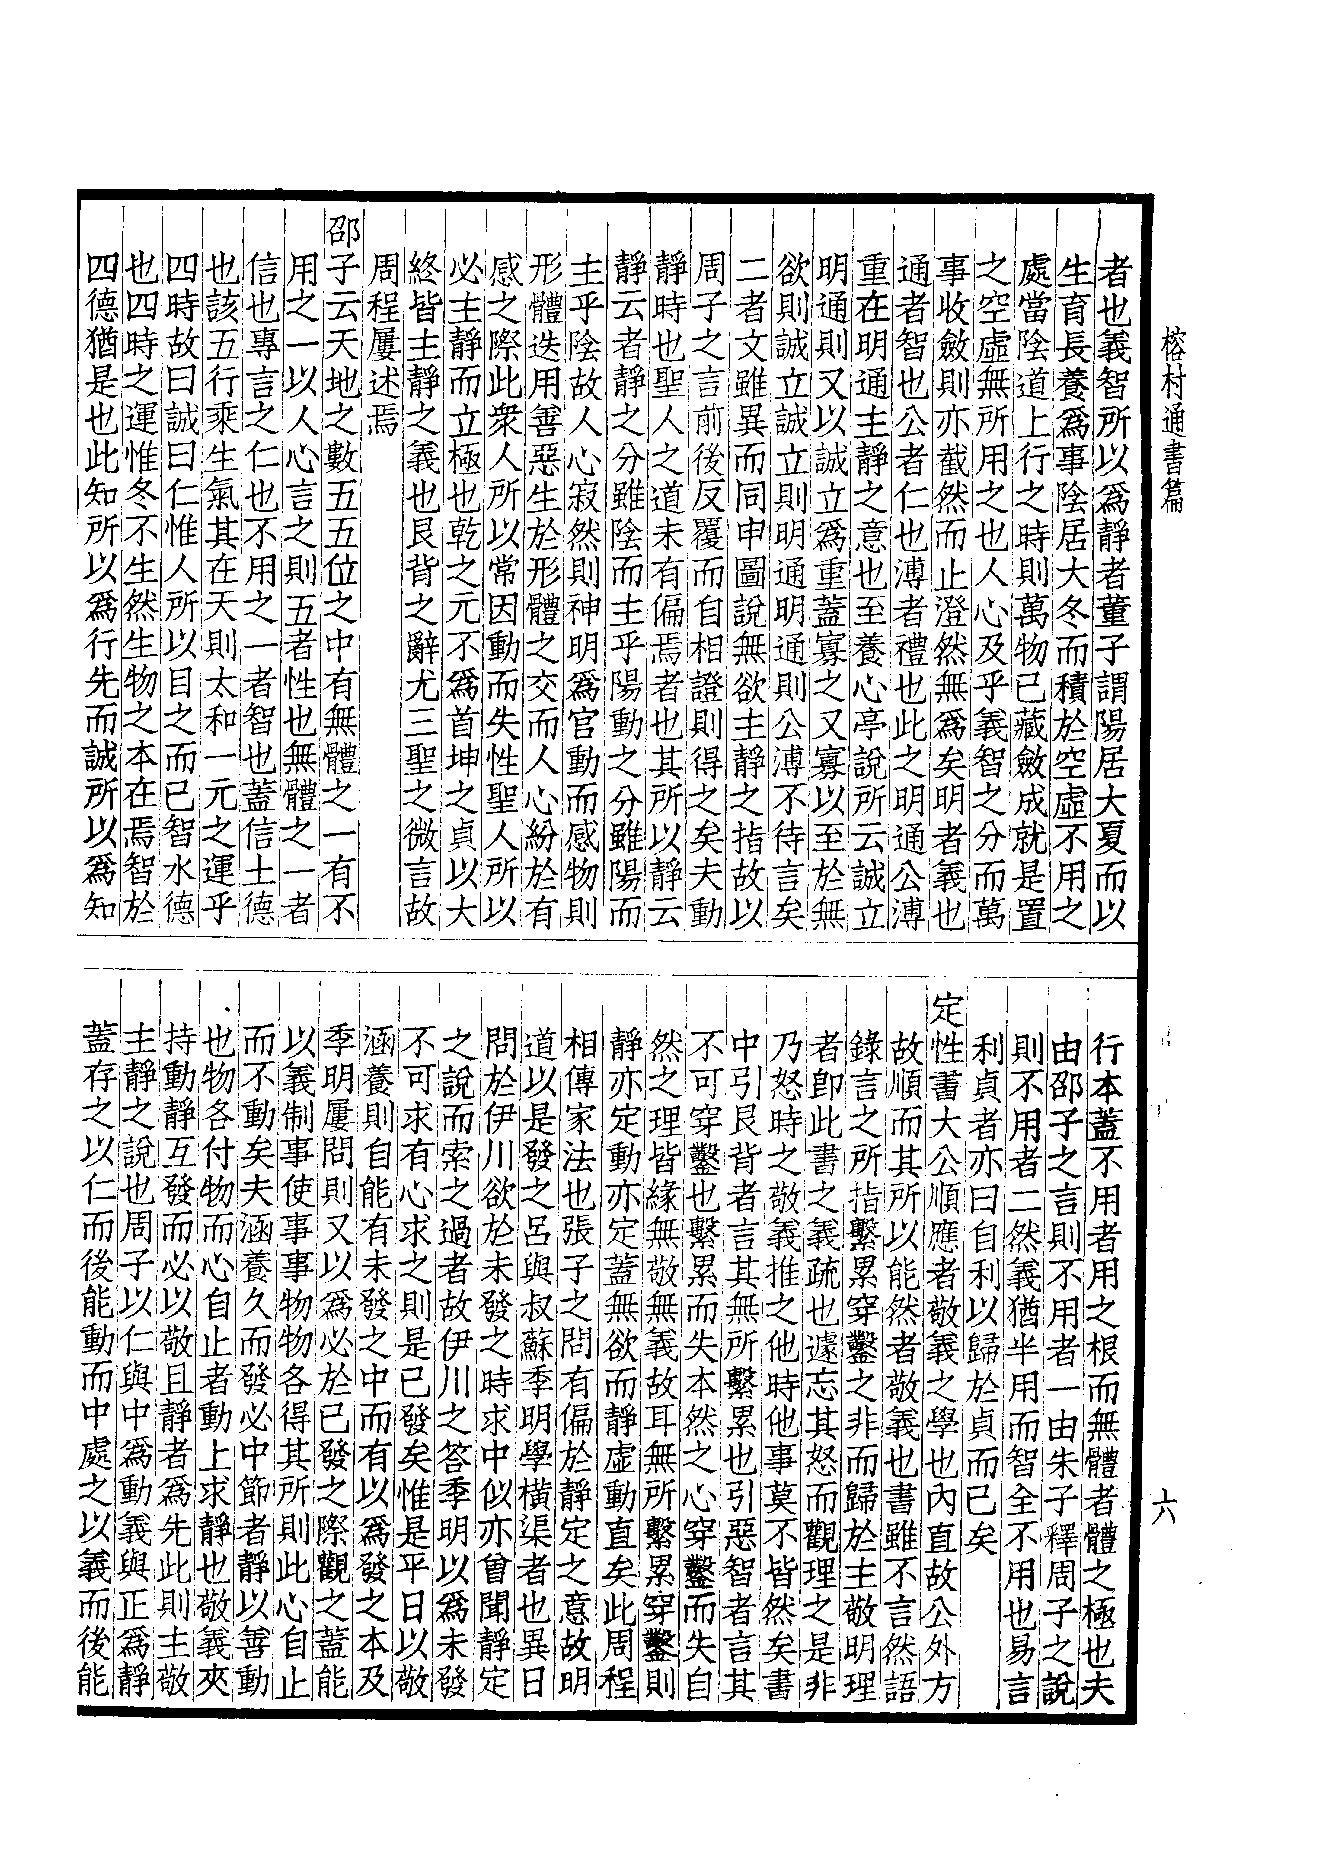 榕村通書篇
者也義智所以爲靜者董子謂陽居大夏而以
生育長養爲事陰居大冬而積於空虛不用之
處當陰道上行之時則萬物已藏斂成就是置
之空虛無所用之也人心及乎義智之分而萬
事收斂則亦截然而止澄然無爲矣明者義也
通者智也公者仁也溥者禮也此之明通公溥
重在明通主靜之意也至養心亭說所云誠立
明通則又以誠立爲重蓋寡之又寡以至於無
欲則誠立誠立則明通明通則公溥不待言矣
二者文雖異而同申圖說無欲主靜之指故以
周子之言前後反覆而自相證則得之矣夫動
靜時也聖人之道未有偏焉者也其所以靜云
靜云者靜之分雖陰而主乎陽動之分雖陽而
主乎陰故人心寂然則神明爲官動而感物則
形體迭用善惡生於形體之交而人心紛於有
感之際此衆人所以常因動而失性聖人所以
必主靜而立極也乾之元不爲首坤之貞以大
終皆主靜之義也艮背之辭尤三聖之微言故
周程屢述焉
邵子云天地之數五五位之中有無體之一有不
用之一以人心言之則五者性也無體之一者
信也專言之仁也不用之一者智也蓋信土德
也該五行乘生氣其在天則太和一元之運乎
四時故曰誠曰仁惟人所以目之而已智水德
也四時之運惟冬不生然生物之本在焉智於
四德猶是也此知所以爲行先而誠所以爲知
行本蓋不用者用之根而無體者體之極也夫
由邵子之言則不用者一由朱子釋周子之說
則不用者二然義猶半用而智全不用也易言
利貞者亦曰自利以歸於貞而已矣
定性書大公順應者敬義之學也內直故公外方
故順而其所以能然者敬義也書雖不言然語
錄言之所指繫累穿鑿之非而歸於主敬明理
者卽此書之義疏也遽忘其怒而觀理之是非
乃怒時之敬義推之他時他事莫不皆然矣書
中引艮背者言其無所繫累也引惡智者言其
不可穿鑿也繫累而失本然之心穿鑿而失自
然之理皆緣無敬無義故耳無所繫累穿鑿則
靜亦定動亦定蓋無欲而靜虛動直矣此周程
相傳家法也張子之問有偏於靜定之意故明
道以是發之呂與叔蘇季明學橫渠者也異日
問於伊川欲於未發之時求中似亦曾聞靜定
之說而索之過者故伊川之答季明以爲未發
不可求有心求之則是已發矣惟是平日以敬
涵養則自能有未發之中而有以爲發之本及
季明屢問則又以爲必於已發之際觀之蓋能
以義制事使事事物物各得其所則此心自止
而不動矣夫涵養久而發必中節者靜以善動
也物各付物而心自止者動上求靜也敬義夾
持動靜互發而必以敬且靜者爲先此則主敬
主靜之說也周子以仁與中爲動義與正爲靜
蓋存之以仁而後能動而中處之以義而後能
六